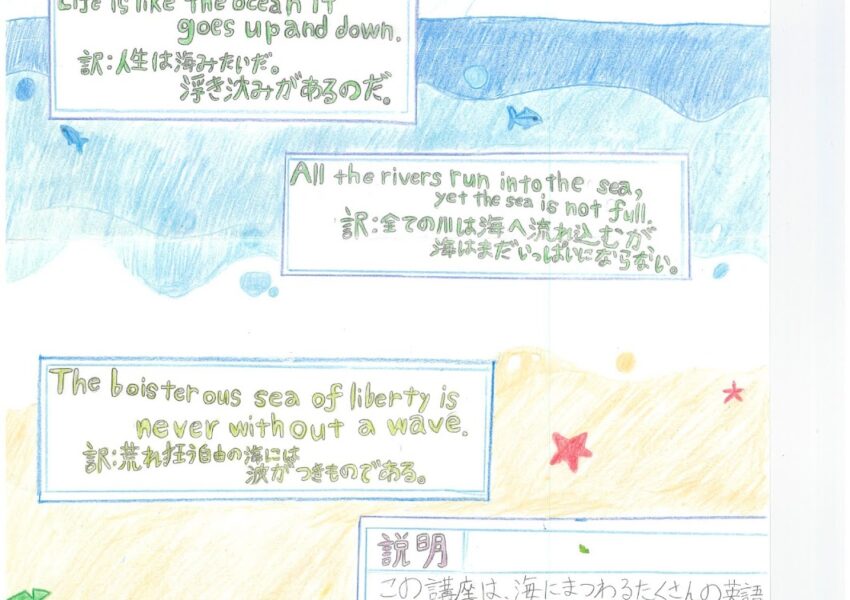 Life is like the ocean it
goes up and down.
訳:人生は海みたいだ。
浮き沈みがあるのだ。
All the rivers run into the sea,
yet the sea is not full.
訳:全ての川は海へ流れ込むが
海はまだいっぱいにならない。
The boisterous sea of liberty is
never without a wave.
訳:荒れ狂う自由の海には
波がつきものである。
説明
この講座は、海にまつわるたくさんの英語